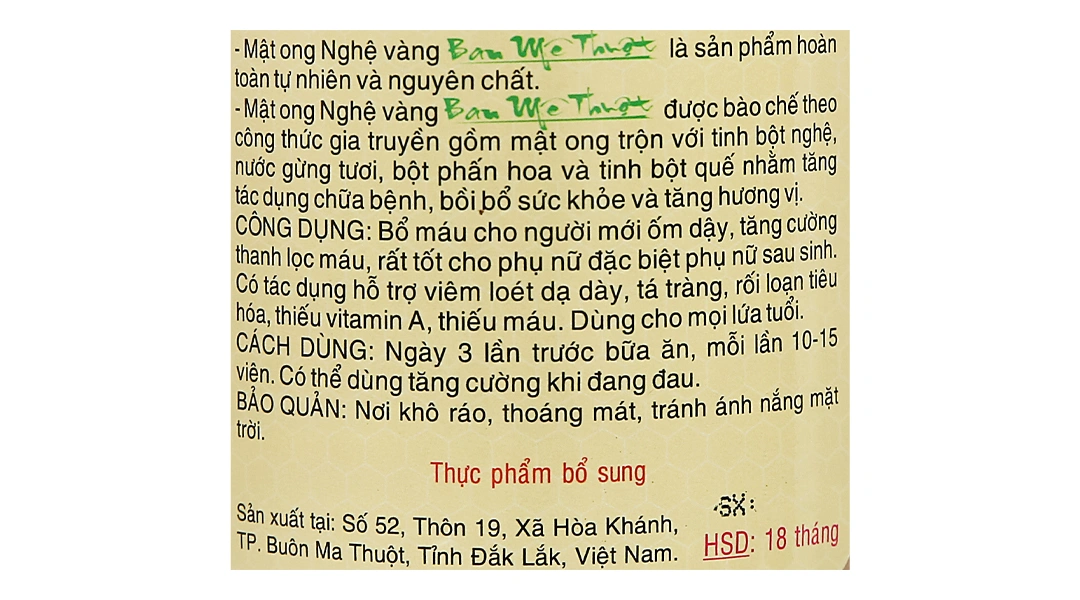 - Mật ong Nghệ vàng Ban Mê Thuột là sản phẩm hoàn
toàn tự nhiên và nguyên chất.
- Mật ong Nghệ vàng Ban Mê Thuột được bào chế theo
công thức gia truyền gồm mật ong trộn với tinh bột nghệ,
nước gừng tươi, bột phấn hoa và tinh bột quế nhằm tăng
tác dụng chữa bệnh, bồi bổ sức khỏe và tăng hương vị.
CÔNG DỤNG: Bổ máu cho người mới ốm dậy, tăng cường
thanh lọc máu, rất tốt cho phụ nữ đặc biệt phụ nữ sau sinh.
Có tác dụng hỗ trợ viêm loét dạ dày, tá tràng, rối loạn tiêu
hóa, thiếu vitamin A, thiếu máu. Dùng cho mọi lứa tuổi.
CÁCH DÙNG: Ngày 3 lần trước bữa ăn, mỗi lần 10-15
viên. Có thể dùng tăng cường khi đang đau.
BẢO QUẢN: Nơi khô ráo, thoáng mát, tránh ánh nắng mặt
trời.
Thực phẩm bổ sung
Sản xuất tại: Số 52, Thôn 19, Xã Hòa Khánh,
TP. Buôn Ma Thuột, Tỉnh Đắk Lắk, Việt Nam.
SX:
HSD: 18 tháng